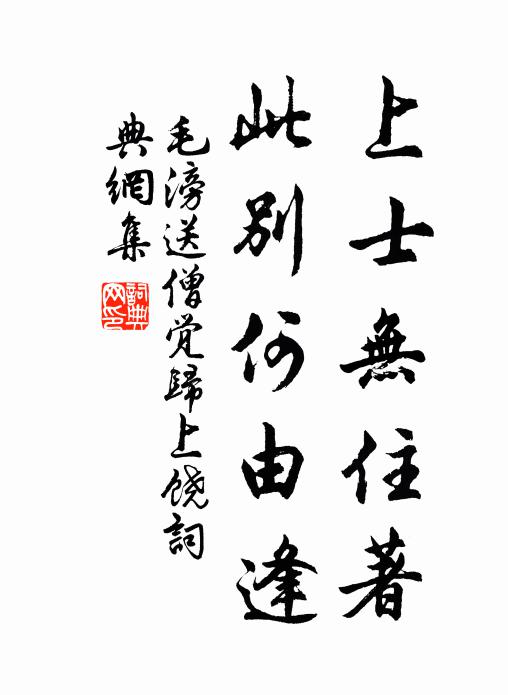 上士無住著
此別何由逢
毛滂送僧覚歸上饶詞
典網集
詞典
网印